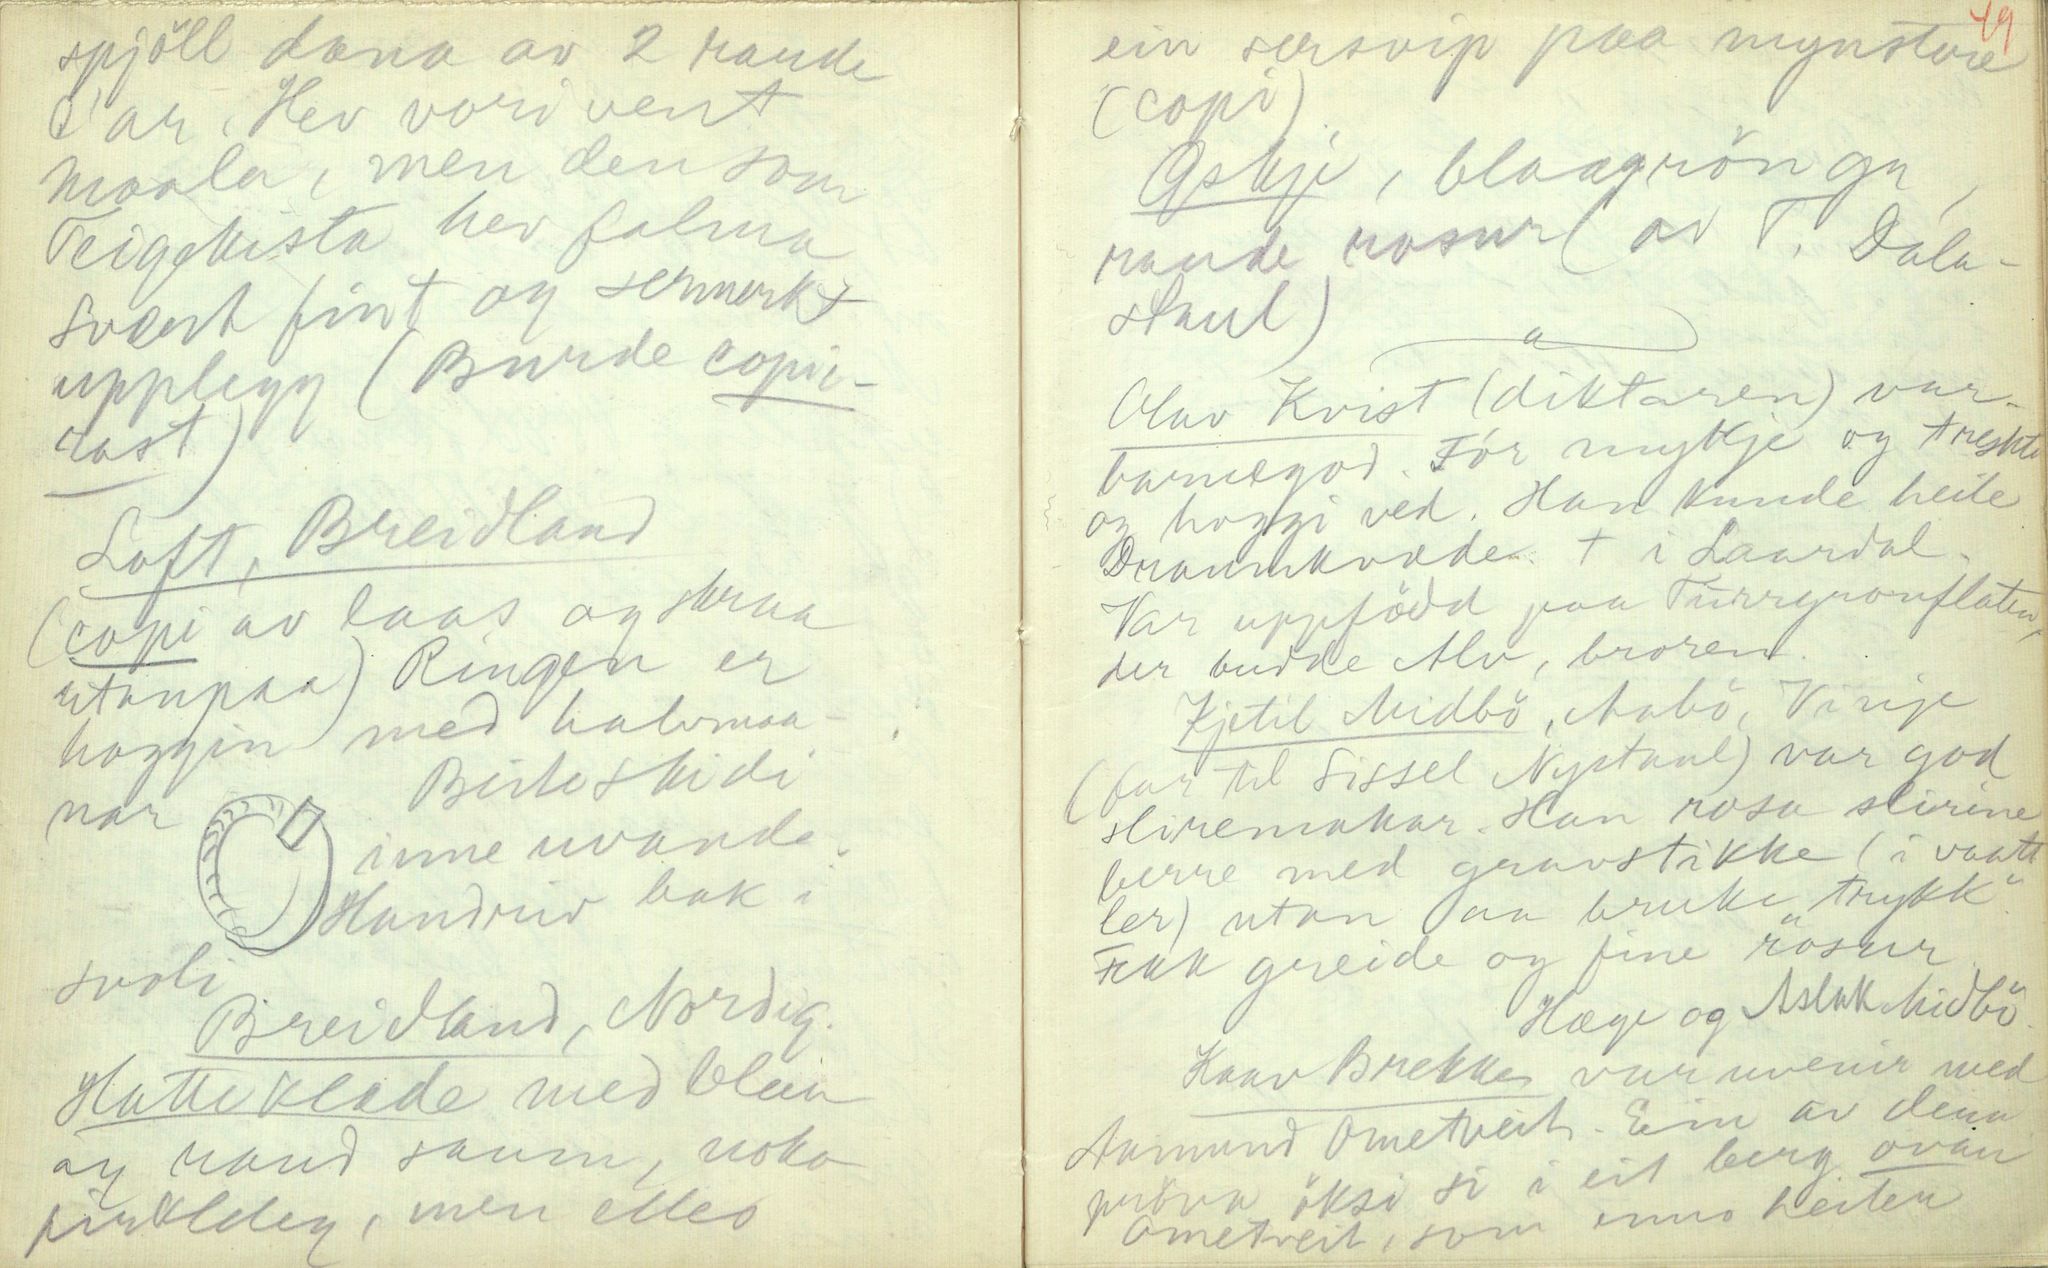 spjöll dana av 2 raude
C'ar. Hev vori vent
maala, men den som
Teigekista hev falma
Svært fint og sermerkt
upplegg (Burde copie-
rast)
Loft, Breidland
(copi av laas og skraa
utanpaa) Ringen er
hoggin med halvmaa-
nar Beiteskidi
inne uvande.
Handriv bak i
svoli
Breidland, Nordig.
Hatteklade med blaa
og raud saum, noko
men elles
49
ein sersvip paa mynstre
(copi)
Oskje, blaagrön gr,
raude rosur (av T. Dala-
staul)
Olav Kvist (diktaren) var
barnegod. För mykje og treskte
og hoggi ved. Han kunde heile
Draumkvæde. † i Laardal.
Var uppfödd paa Turrgronflaten,
der budde Alv, broren.
Kjetil Midbö, Aabö, Vinje
(far til Sissel Nystaul) var god
sliremakar. Han rosa slirine
berre med gravstikke (i vaatt
ler) utan aa bruke "trykk".
Fekk greide og fine rösur
Hæge og Aslak Midbö.
Knav Brekke var uvenir med
Aamund Ometveit. Ein av deim
pröva öksi si i eit berg ovan
Ometveit, som enno heiter